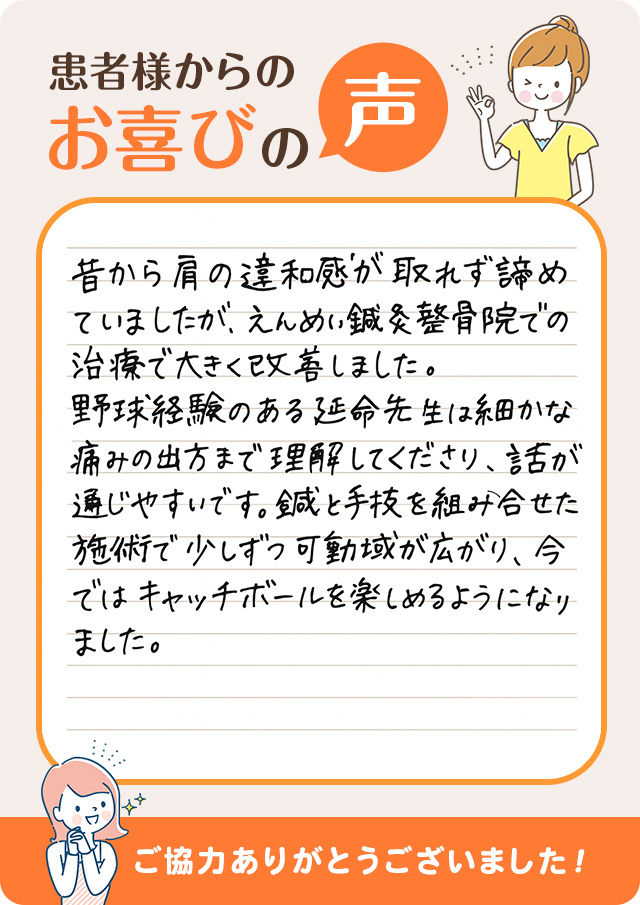 患者様からの
お喜びの声
昔から肩の違和感が取れず諦め
ていましたが、えんめい鍼灸整骨院での
治療で大きく改善しました。
野球経験のある延命先生は細かな
痛みの出方まで理解してくださり、話が
通じやすいです。鍼と手技を組み合せた
施術で少しずつ可動域が広がり、今
ではキャッチボールを楽しめるようになり
ました。
ご協力ありがとうございました!